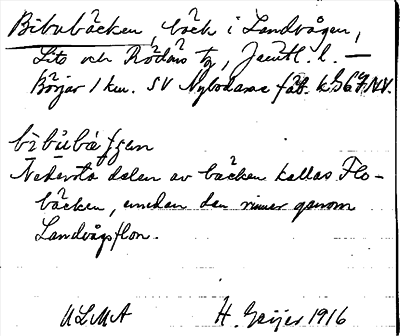 Bibubäcken, bäck i Landvågen,
Lits och Rödöns tg, Jämtl. l. —
Börjar 1 km. SV Nybodarne fäb.
bibubäƷƷen
Nedersta delen av bäcken kallas Flo-
bäcken, emedan den rinner genom
Landvågsflon.
ULMA H. Geijer 1916